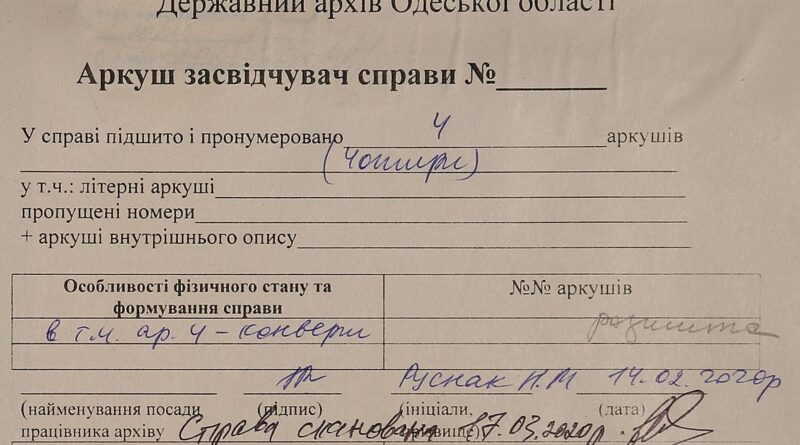 Державний архів Одеської області
Аркуш засвідчувач справи №
У справі підшито і пронумеровано 4 аркушів
(Чотири)
у т.ч.: літерні аркуші
пропущені номери
+ аркуші внутрішнього опису
Особливості фізичного стану та формування справи
№№ аркушів
в т.ч. ар. 4 - конверти
розшита
Руснак Н.М 14.02.2020р
(найменування посади (підпис) (ініціали, (дата)
працівника архіву прізвище)
Справа сканована 17.03.2020р.